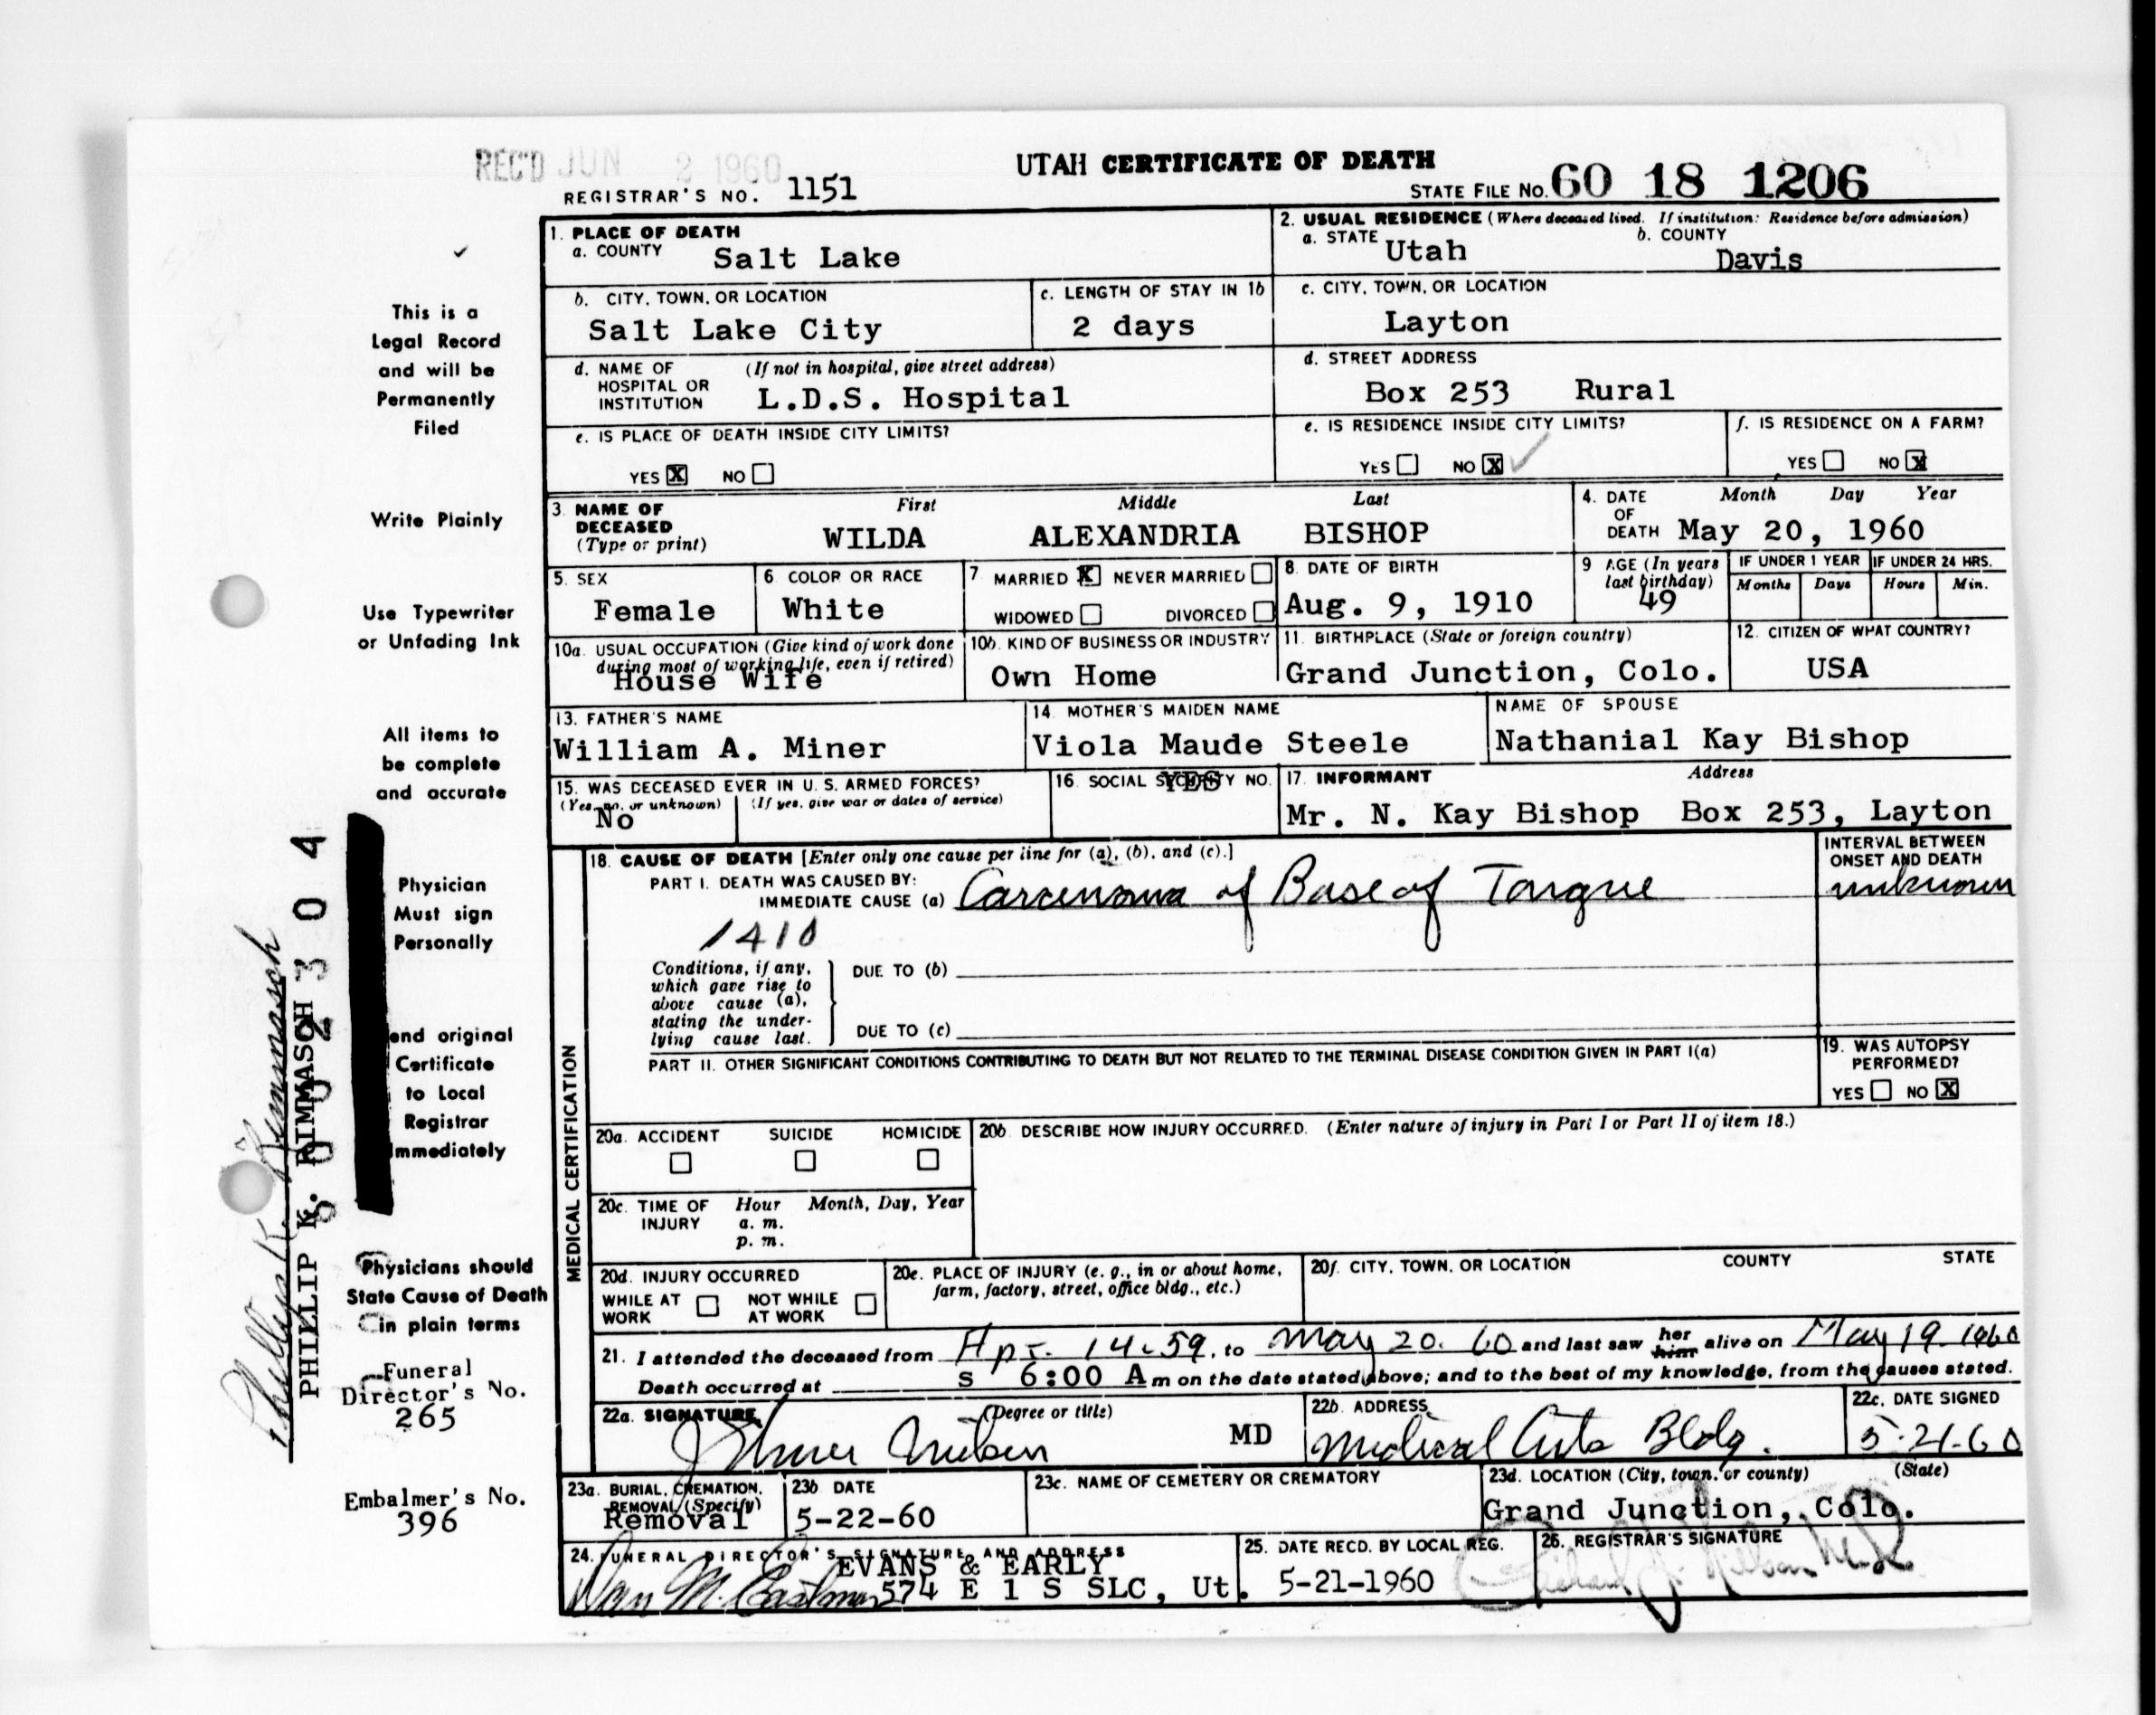 REC'D JUN 2 1960
UTAH CERTIFICATE OF DEATH
REGISTRAR'S NO. 1151
STATE FILE NO. 60 18 1206
1. PLACE OF DEATH
a. COUNTY Salt Lake
2. USUAL RESIDENCE (Where deceased lived. If institution: Residence before admission)
a. STATE Utah b. COUNTY Davis
b. CITY, TOWN, OR LOCATION
Salt Lake City
c. LENGTH OF STAY IN 1b
2 days
c. CITY, TOWN, OR LOCATION
Layton
d. NAME OF HOSPITAL OR INSTITUTION (If not in hospital, give street address)
L.D.S. Hospital
d. STREET ADDRESS
Box 253 Rural
e. IS PLACE OF DEATH INSIDE CITY LIMITS?
YES X NO
e. IS RESIDENCE INSIDE CITY LIMITS?
YES NO X
f. IS RESIDENCE ON A FARM?
YES NO X
3. NAME OF DECEASED (Type or print)
First Middle Last
WILDA ALEXANDRIA BISHOP
4. DATE OF DEATH Month Day Year
May 20, 1960
5. SEX
Female
6. COLOR OR RACE
White
7 MARRIED X NEVER MARRIED
WIDOWED DIVORCED
8. DATE OF BIRTH
Aug. 9, 1910
9 AGE (In years last birthday)
49
IF UNDER 1 YEAR
Months Days
IF UNDER 24 HRS.
Hours Min.
10a. USUAL OCCUPATION (Give kind of work done during most of working life, even if retired)
House Wife
10b. KIND OF BUSINESS OR INDUSTRY
Own Home
11. BIRTHPLACE (State or foreign country)
Grand Junction, Colo.
12. CITIZEN OF WHAT COUNTRY?
USA
13. FATHER'S NAME
William A. Miner
14. MOTHER'S MAIDEN NAME
Viola Maude Steele
NAME OF SPOUSE
Nathanial Kay Bishop
15. WAS DECEASED EVER IN U. S. ARMED FORCES?
(Yes, no, or unknown) (If yes, give war or dates of service)
No
16. SOCIAL SECURITY NO.
YES
17. INFORMANT Address
Mr. N. Kay Bishop Box 253, Layton
MEDICAL CERTIFICATION
18. CAUSE OF DEATH [Enter only one cause per line for (a), (b), and (c).]
INTERVAL BETWEEN ONSET AND DEATH
PART I. DEATH WAS CAUSED BY:
IMMEDIATE CAUSE (a) Carcenoma of Base of Tongue
unknown
1410
Conditions, if any, which gave rise to above cause (a), stating the underlying cause last.
DUE TO (b)
DUE TO (c)
PART II. OTHER SIGNIFICANT CONDITIONS CONTRIBUTING TO DEATH BUT NOT RELATED TO THE TERMINAL DISEASE CONDITION GIVEN IN PART I(a)
19. WAS AUTOPSY PERFORMED?
YES NO X
20a. ACCIDENT SUICIDE HOMICIDE
20b. DESCRIBE HOW INJURY OCCURRED. (Enter nature of injury in Part I or Part II of item 18.)
20c. TIME OF INJURY Hour Month, Day, Year
a. m.
p. m.
20d. INJURY OCCURRED
WHILE AT WORK NOT WHILE AT WORK
20e. PLACE OF INJURY (e. g., in or about home, farm, factory, street, office bldg., etc.)
20f. CITY, TOWN, OR LOCATION COUNTY STATE
21. I attended the deceased from Apr. 14-59, to May 20. 60 and last saw her him alive on May 19. 1960
Death occurred at s 6:00 A m on the date stated above; and to the best of my knowledge, from the causes stated.
22a. SIGNATURE (Degree or title)
MD
22b. ADDRESS
Medical Arts Bldg.
22c. DATE SIGNED
5-21-60
23a. BURIAL, CREMATION, REMOVAL (Specify)
Removal
23b DATE
5-22-60
23c. NAME OF CEMETERY OR CREMATORY
23d. LOCATION (City, town, or county) (State)
Grand Junction, Colo.
24. FUNERAL DIRECTOR'S SIGNATURE AND ADDRESS
EVANS & EARLY
574 E 1 S SLC, Ut.
25. DATE RECD. BY LOCAL REG.
5-21-1960
26. REGISTRAR'S SIGNATURE
This is a
Legal Record
and will be
Permanently
Filed
Write Plainly
Use Typewriter
or Unfading Ink
All items to
be complete
and accurate
Physician
Must sign
Personally
end original
Certificate
to Local
Registrar
mmediately
Physicians should
State Cause of Death
in plain terms
Funeral
Director's No.
265
Embalmer's No.
396
PHILLIP K. RIMMASCH